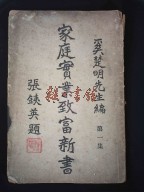 吳楚明先生編
第一集
家庭實業致富新書
張錟英題